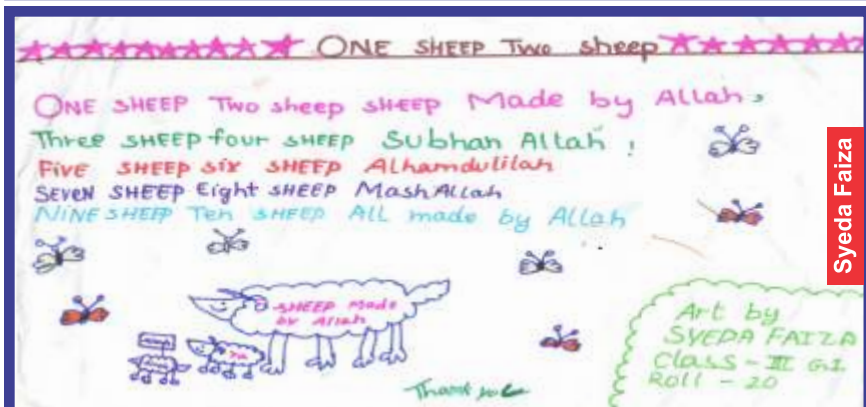 ONE SHEEP Two sheep
ONE SHEEP Two sheep SHEEP Made by Allah,
Three SHEEP four SHEEP Subhan Allah !
Five SHEEP six SHEEP Alhamdulilah
SEVEN SHEEP Eight SHEEP MashAllah
NINE SHEEP Ten SHEEP All made by Allah
Syeda Faiza
SHEEP Made
by Allah
Art by
SYEDA FAIZA
Class - III G.I
Roll - 20
Thank you